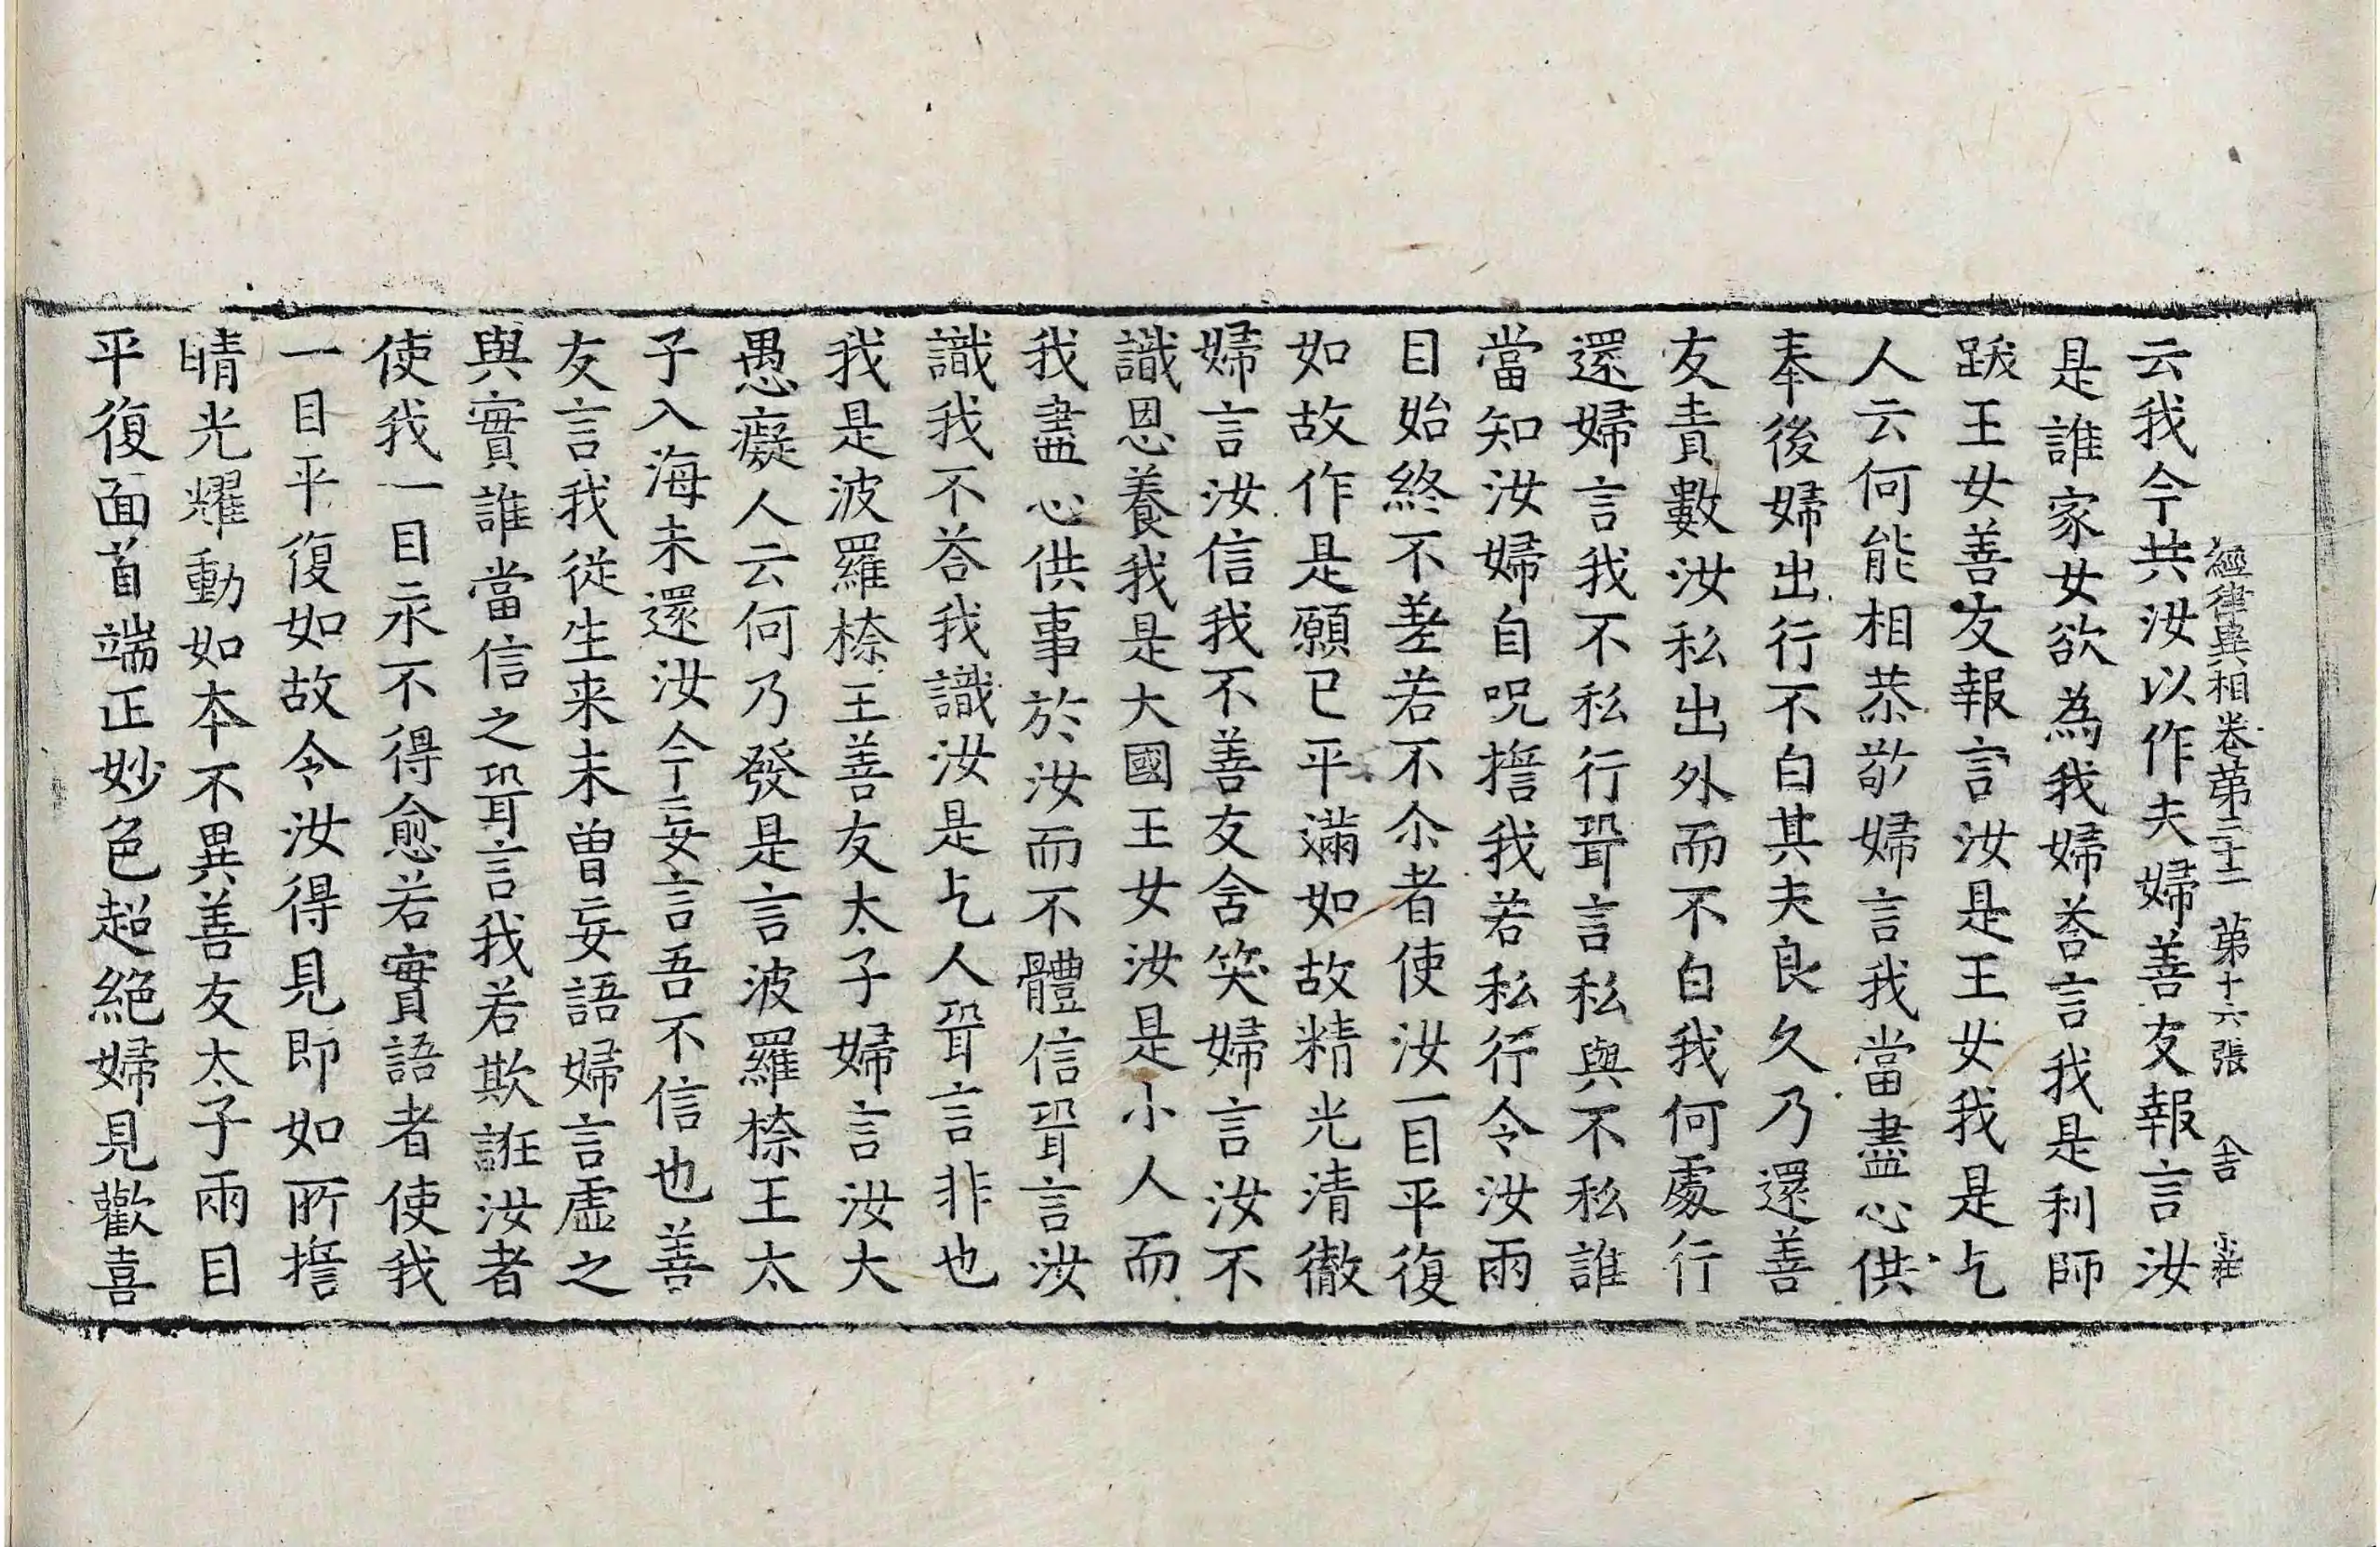 經律異相卷第三十二 第十六張 舍
云我今共汝以作夫婦善友報言汝
是誰家女欲為我婦荅言我是利師
跋王女善友報言汝是王女我是乞
人云何能相恭敬婦言我當盡心供
奉後婦出行不白其夫良久乃還善
友責數汝私出外而不白我何處行
還婦言我不私行聟言私與不私誰
當知汝婦自呪擔我若私行令汝兩
目始終不差若不尒者使汝一目平復
如故作是願已平滿如故精光清徹
婦言汝信我不善友舍笑婦言汝不
識恩養我是大國王女汝是小人而
我盡心供事於汝而不體信聟言汝
識我不荅我識汝是乞人聟言非也
我是波羅㮈王善友太子婦言汝大
愚癡人云何乃發是言波羅㮈王太
子入海未還汝今妄言吾不信也善
友言我從生来未曾妄語婦言虛之
與實誰當信之聟言我若欺誑汝者
使我一目永不得愈若實語者使我
一目平復如故令汝得見即如所擔
晴光耀動如本不異善友太子兩目
平復面首端正妙色超絕婦見歡喜